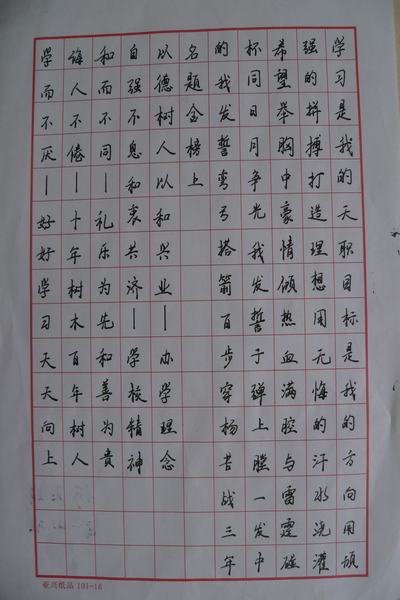 学习是我的天职目标是我的方向用顽
强的拼搏打造理想用无悔的汗水浇灌
希望举胸中豪情倾热血满腔与雷霆碰
杯同日月争光我发誓子弹上膛一发中
的我发誓弯弓搭箭百步穿杨苦战三年
名题金榜上
以德树人以和兴业—办学理念
自强不息和衷共济—学校精神
和而不同—礼乐为先和善为贵
诲人不倦—十年树木百年树人
学而不厌—好好学习天天向上
亚兴纸品 101-16